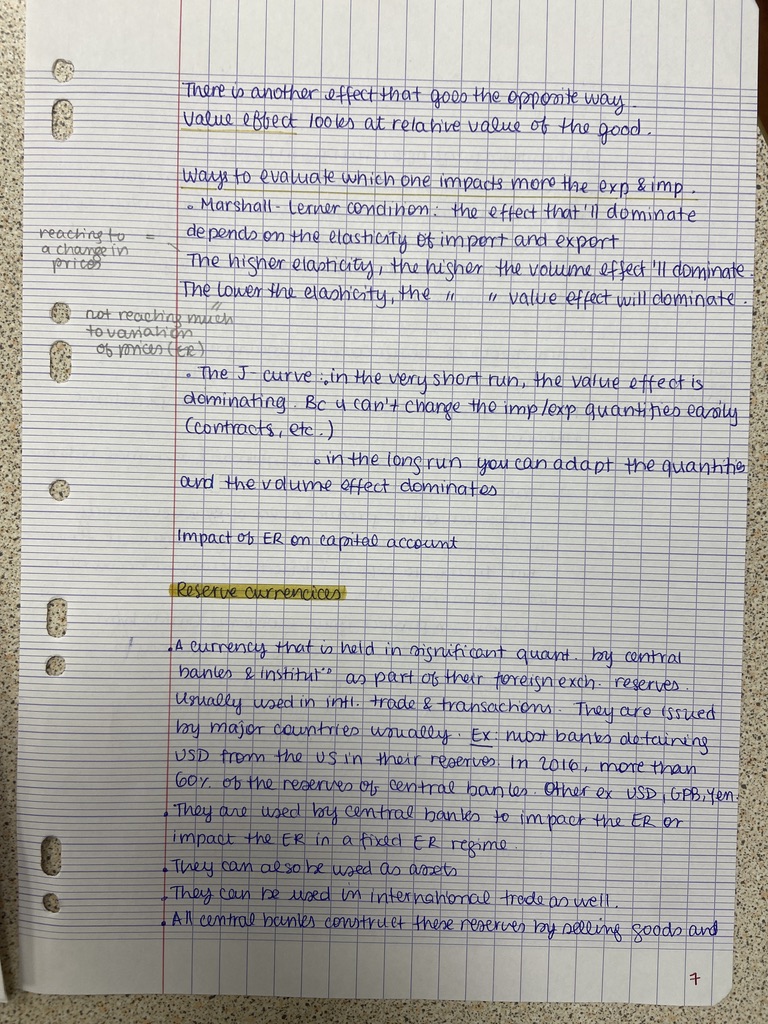 There is another effect that goes the opposite way.
Value effect looks at relative value of the good.
Ways to evaluate which one impacts more the exp & imp.
. Marshall-Lerner condition: the effect that'll dominate
depends on the elasticity of import and export
reacting to =
a change in
prices
The higher elasticity, the higher the volume effect'll dominate.
The lower the elasticity, the " " value effect will dominate.
not reaching much
to variation
of prices (ER)
. The J-curve : . in the very short run, the value effect is
dominating. Bc u can't change the imp/exp quantities easily
(contracts, etc.)
. in the long run you can adapt the quantities
and the volume effect dominates
Impact of ER on capital account
Reserve currencices
. A currency that is held in significant quant. by central
banks & institut° as part of their foreign exch. reserves.
Usually used in intl. trade & transactions. They are issued
by major countries usually. Ex: most banks detaining
USD from the US in their reserves. In 2016, more than
60% of the reserves of central banks. Other ex USD, GPB, Yen.
. They are used by central banks to impact the ER or
impact the ER in a fixed ER regime.
. They can also be used as assets
. They can be used in international trade as well.
. All central banks construct these reserves by selling goods and
7